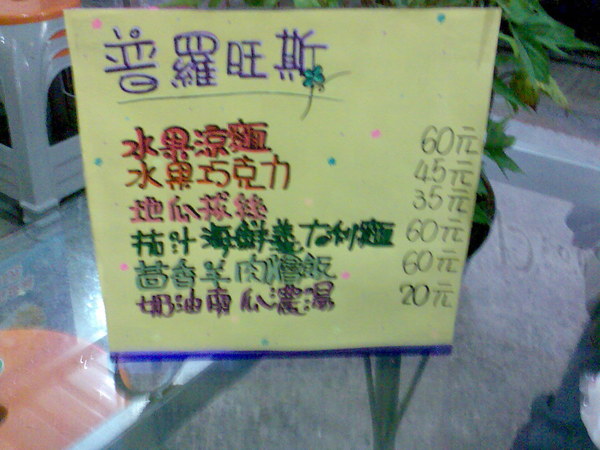 普羅旺斯
水果涼麵 60元
水果巧克力 45元
地瓜球 35元
茄汁海鮮義大利麵 60元
茴香羊肉燴飯 60元
奶油南瓜濃湯 20元